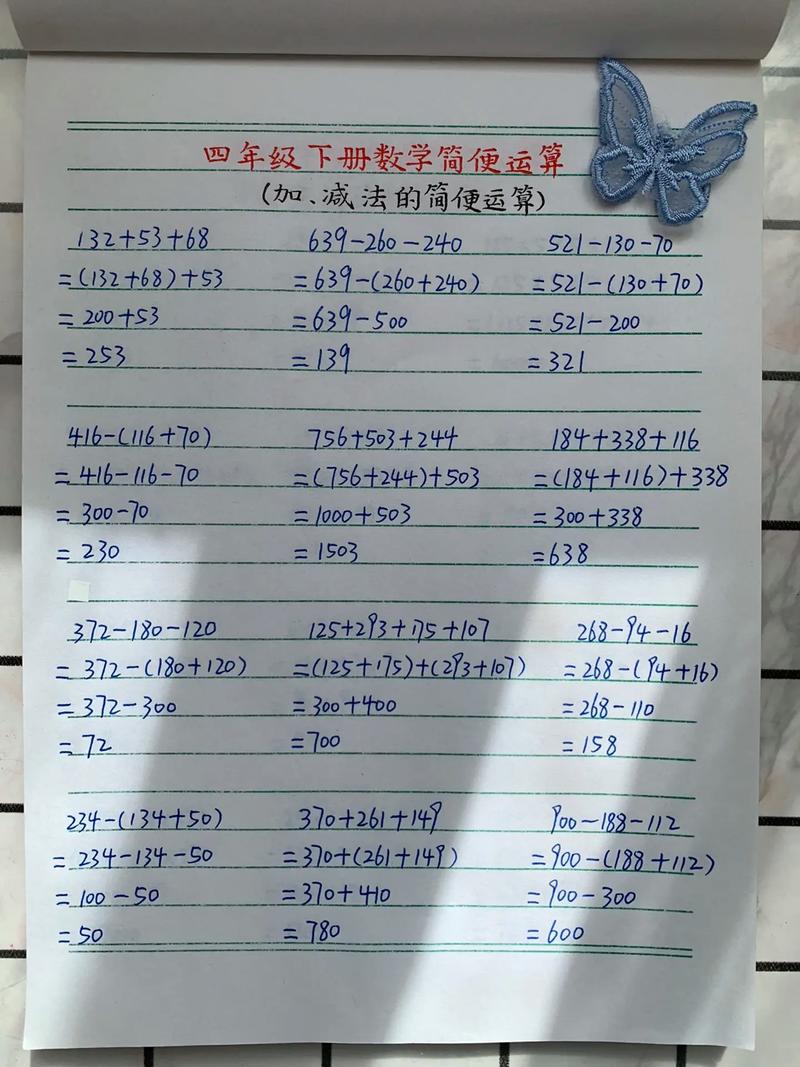 四年级下册数学简便运算
(加、减法的简便运算)
132+53+68 639-260-240 521-130-70
=(132+68)+53 =639-(260+240) =521-(130+70)
=200+53 =639-500 =521-200
=253 =139 =321
416-(116+70) 756+503+244 184+338+116
=416-116-70 =(756+244)+503 =(184+116)+338
=300-70 =1000+503 =300+338
=230 =1503 =638
372-180-120 125+293+175+107 268-94-16
=372-(180+120) =(125+175)+(293+107) =268-(94+16)
=372-300 =300+400 =268-110
=72 =700 =158
234-(134+50) 370+261+149 900-188-112
=234-134-50 =370+(261+149) =900-(188+112)
=100-50 =370+410 =900-300
=50 =780 =600